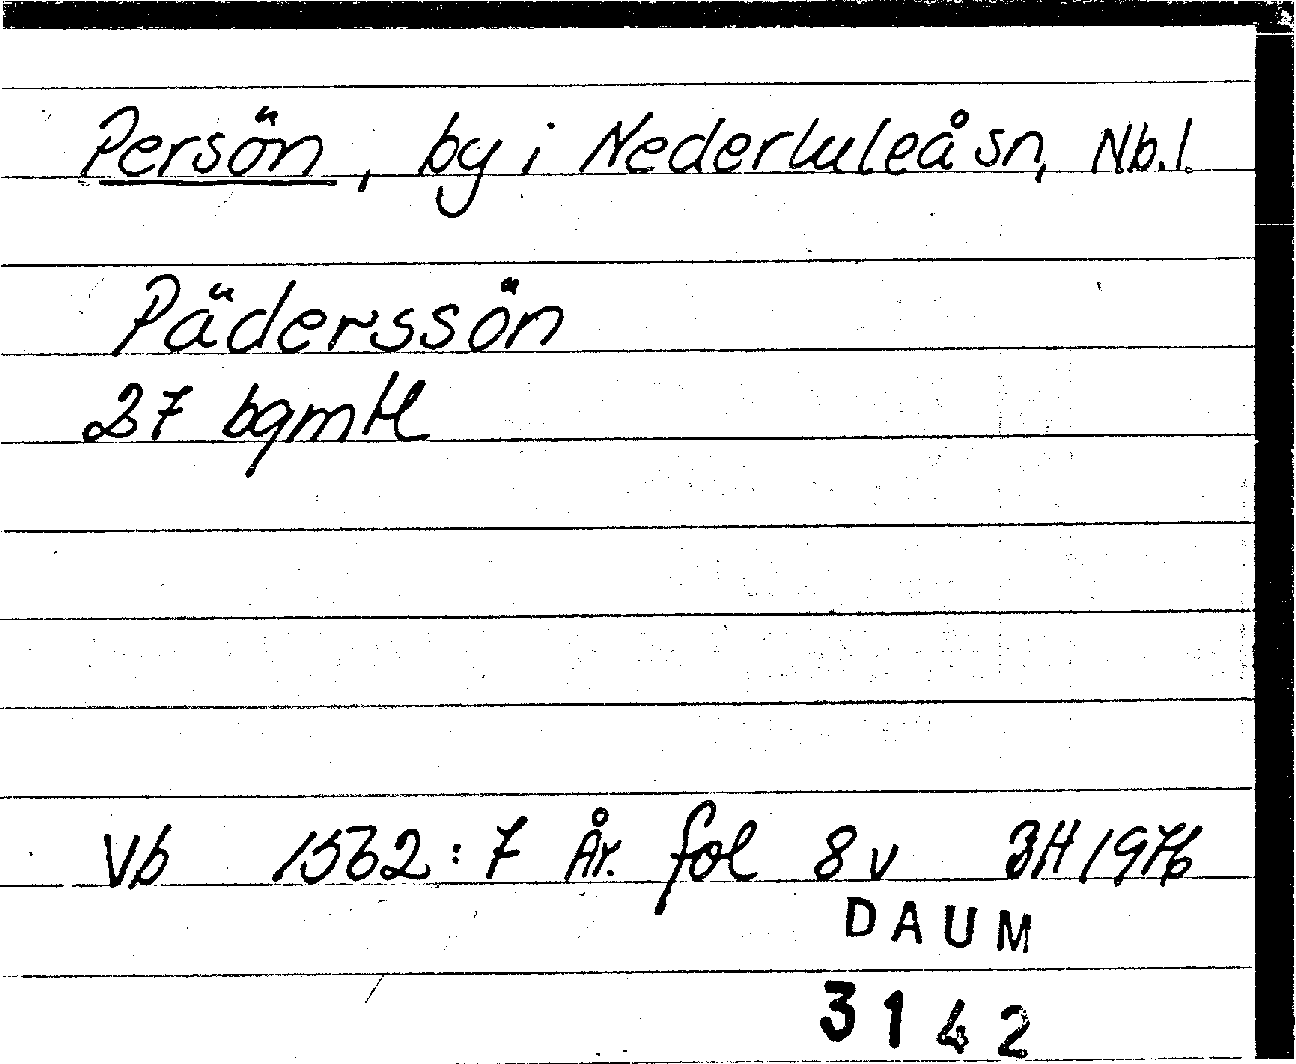 Persön, by i Nederluleå sn, Nb.l.
Päderssön
27 bgmtl
Vb 1562:7 År. fol 8v BH 1976
DAUM
3142